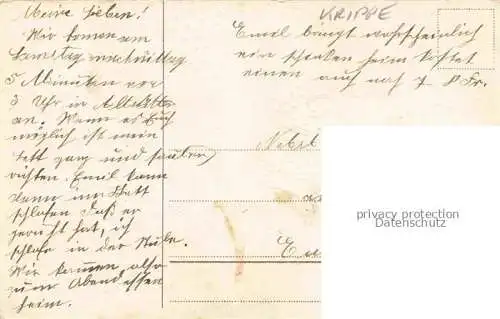 Meine Lieben!
Wir komen am
Samstag nachmittag
5 Minuten vor
3 Uhr in
an. Wenn es Euch
möglich ist mein
bett ganz und
richten. Emil kann
dann im Bett
schlafen Daß er
gerucht hat, ich
schlafe in der Stube.
Wir kommen also
zum Abendessen
heim.
KRIPPE
Emil bringt wahrscheinlich
ein heim kostet
einen auch noch 7 8 Fr.
privacy protection
Datenschutz